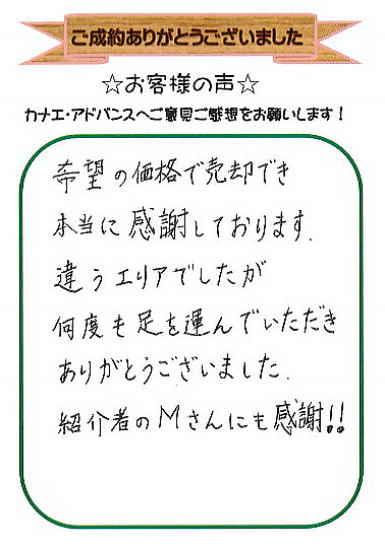 ご成約ありがとうございました
☆お客様の声☆
カナエ・アドバンスへご意見ご感想をお願いします！
希望の価格で売却でき
本当に感謝しております.
違うエリアでしたが
何度も足を運んでいただき
ありがとうございました.
紹介者のMさんにも感謝!!